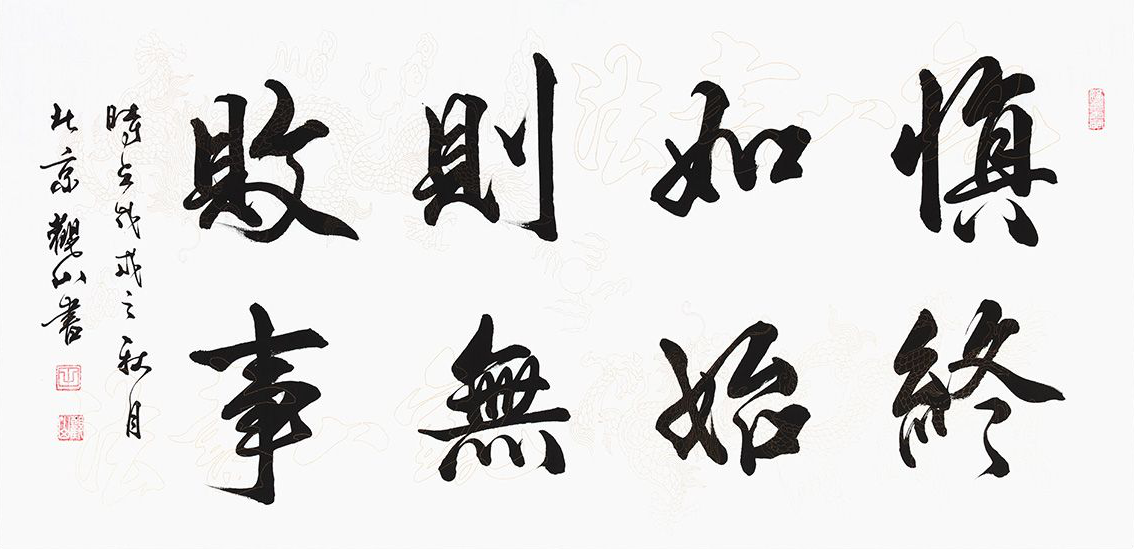 慎終
如始
則無
敗事
時在戊戌之秋月
北京觀山書